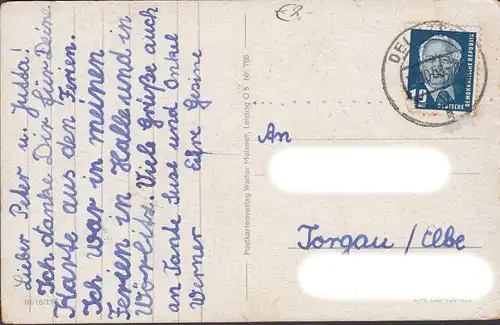 Lieber Peter u. Jutta!
Ich danke Dir für Deine
Karte aus den Ferien.
Ich war in meinen
Ferien in Halle und in
Wörlitz. Viele Grüße auch
an Tante Suse und Onkel
Werner Eure Gerine
III/18/11
Postkartenverlag Walter Meixner, Leipzig O 5 Nr. 786
DEUTSCHE
DEMOKRATISCHE REPUBLIK
An
Torgau / Elbe